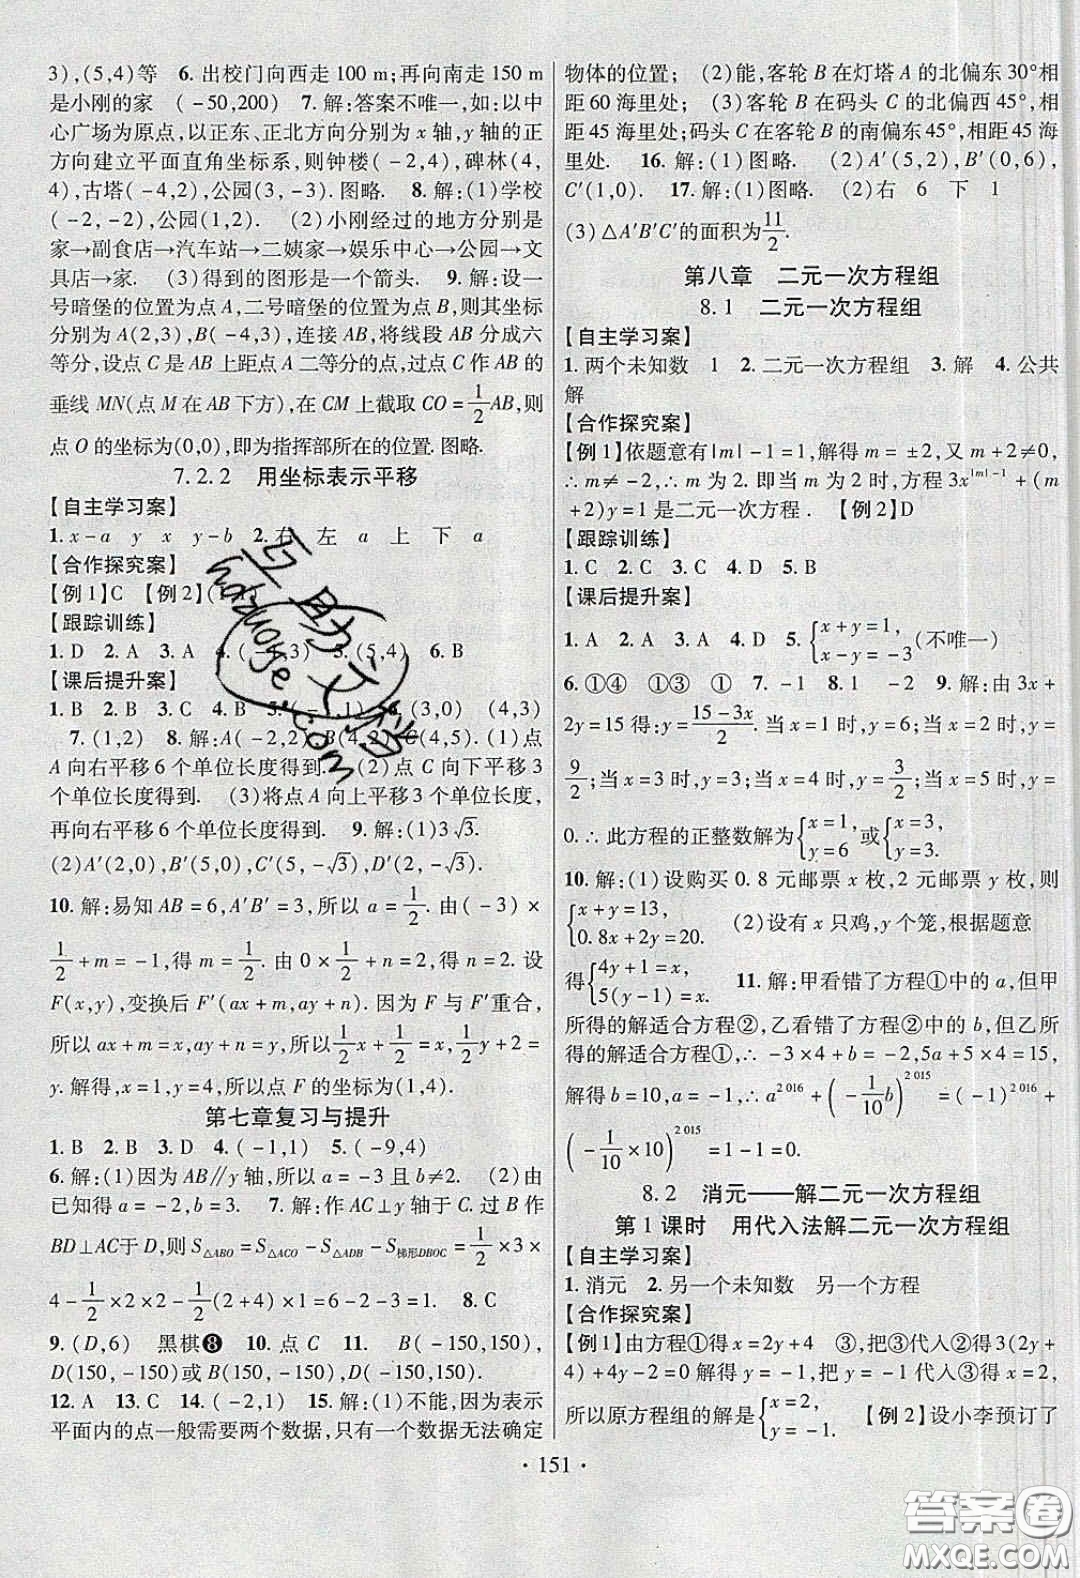 3),(5,4)等　6. 出校门向西走 100 m;再向南走 150 m
是小刚的家　(-50,200)　7. 解:答案不唯一,如:以中
心广场为原点,以正东、正北方向分别为 x 轴,y 轴的正
方向建立平面直角坐标系,则钟楼(-2,4),碑林(4,
4),古塔(-4,2),公园(3,-3).图略.　8. 解:(1)学校
(-2,-2),公园(1,2).　(2)小刚经过的地方分别是
家→副食店→汽车站→二姨家→娱乐中心→公园→文
具店→家.　(3)得到的图形是一个箭头.　9. 解:设一
号暗堡的位置为点 A,二号暗堡的位置为点 B,则其坐标
分别为 A(2,3),B(-4,3),连接 AB,将线段 AB 分成六
等分,设点 C 是 AB 上距点 A 二等分的点,过点 C 作 AB 的
垂线 MN(点 M 在 AB 下方),在 CM 上截取 CO=1/2AB,则
点 O 的坐标为(0,0),即为指挥部所在的位置.图略.
7.2.2　用坐标表示平移
【自主学习案】
1. x-a　y　x　y-b　2. 右　左　a　上　下　a
【合作探究案】
【例1】C　【例2】
【跟踪训练】
1. D　2. A　3. A　4. 3)　5. (5,4)　6. B
【课后提升案】
1. B　2. B　3. D　4. B　1)　(3,0)　(4,3)
7. (1,2)　8. 解:A(-2,2),B(4,2),C(4,5).(1)点
A 向右平移 6 个单位长度得到.　(2)点 C 向下平移 3
个单位长度得到.　(3)将点 A 向上平移 3 个单位长度,
再向右平移 6 个单位长度得到.　9. 解:(1)3√3.
(2)A′(2,0),B′(5,0),C′(5,-√3),D′(2,-√3).
10. 解:易知 AB=6,A′B′=3,所以 a=1/2.由(-3)×
1/2+m=-1,得 m=1/2.由 0×1/2+n=2,得 n=2. 设
F(x,y),变换后 F′(ax+m,ay+n).因为 F 与 F′重合,
所以 ax+m=x,ay+n=y.所以 1/2x+1/2=x,1/2y+2=
y.解得,x=1,y=4,所以点 F 的坐标为(1,4).
第七章复习与提升
1. B　2. B　3. D　4. (-1,1)　5. (-9,4)
6. 解:(1)因为 AB∥y 轴,所以 a=-3 且 b≠2.　(2)由
已知得 a=-2,b=-2.　7. 解:作 AC⊥y 轴于 C.过 B 作
BD⊥AC 于 D,则 S△ABO=S△ACO-S△ADB-S梯形DBOC=1/2×3×
4-1/2×2×2-1/2(2+4)×1=6-2-3=1.　8. C
9. (D,6)　黑棋❽　10. 点 C　11.　B(-150,150),
D(150,-150)或 B(150,150),D(-150,-150)
12. A　13. C　14. (-2,1)　15. 解:(1)不能,因为表示
平面内的点一般需要两个数据,只有一个数据无法确定
物体的位置;　(2)能,客轮 B 在灯塔 A 的北偏东 30°相
距 60 海里处;　(3)客轮 B 在码头 C 的北偏西 45°,相
距 45 海里处;码头 C 在客轮 B 的南偏东 45°,相距 45 海
里处.　16. 解:(1)图略.　(2)A′(5,2),B′(0,6),
C′(1,0).　17. 解:(1)图略.　(2)右　6　下　1
(3)△A′B′C′的面积为11/2.
第八章　二元一次方程组
8.1　二元一次方程组
【自主学习案】
1. 两个未知数　1　2. 二元一次方程组　3. 解　4. 公共
解
【合作探究案】
【例1】依题意有|m|-1=1,解得 m=±2,又 m+2≠0,
∴m≠-2,∴m=2.即当 m=2 时,方程 3x^(|m|-1)+(m
+2)y=1 是二元一次方程.　【例2】D
【跟踪训练】
1. C　2. C　3. C　4. D　5. B
【课后提升案】
1. A　2. A　3. A　4. D　5. {x+y=1, x-y=-3(不唯一)
6. ①④　①③　①　7. -1　8. 1　-2　9. 解:由 3x+
2y=15 得:y=(15-3x)/2.当 x=1 时,y=6;当 x=2 时,y=
9/2;当 x=3 时,y=3;当 x=4 时,y=3/2;当 x=5 时,y=
0.∴此方程的正整数解为{x=1, y=6 或{x=3, y=3.
10. 解:(1)设购买 0.8 元邮票 x 枚,2 元邮票 y 枚,则
{x+y=13, 0.8x+2y=20.　(2)设有 x 只鸡,y 个笼,根据题意
得{4y+1=x, 5(y-1)=x.　11. 解:甲看错了方程①中的 a,但甲
所得的解适合方程②,乙看错了方程②中的 b,但乙所
得的解适合方程①,∴-3×4+b=-2,5a+5×4=15,
解得 b=10,a=-1,∴a^2 016+(-1/10b)^2 015=(-1)^2 016+
(-1/10×10)^2 015=1-1=0.
8.2　消元——解二元一次方程组
第 1 课时　用代入法解二元一次方程组
【自主学习案】
1. 消元　2. 另一个未知数　另一个方程
【合作探究案】
【例1】由方程①得 x=2y+4　③,把③代入②得 3(2y+
4)+4y-2=0 解得 y=-1,把 y=-1 代入③得 x=2,
所以原方程组的解是{x=2, y=-1.　【例2】设小李预订了
· 151 ·
互助文档
hdzuoye.com
答案圈
MXQE.COM